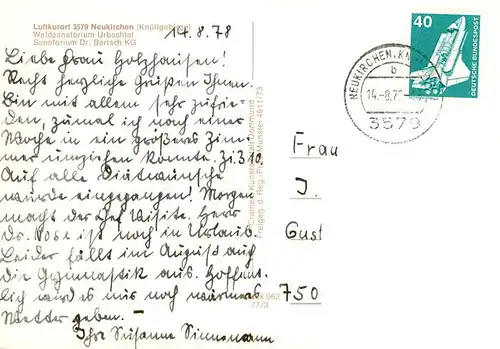 Luftkurort 3579 Neukirchen (Knüllgebirge)
Waldsanatorium Urbachtal
Sanatorium Dr. Bartsch KG
14.8.78
Liebe Frau Holzhausen!
Recht herzliche Grüßen Ihnen.
Bin mit allem sehr zufrie-
den, zumal ich noch einer
Woche in ein größeres Zim-
mer umziehen konnte. Zi. 310.
Auf alle Diätwünsche
wurde eingegangen! Morgen
macht der Chef Visite. Herr
Dr. Vose ist noch in Urlaub.
Leider fällt im August auch
die Gymnastik aus. Hoffent-
lich wird es nur noch wärmeres
Wetter geben. –
Ihre Susanne Sinnemann
Cramers Kunstanstalt Dortmund
Freigeg. d. Reg.-Präs. Münster 4611/73
062
77/3
40
DEUTSCHE BUNDESPOST
NEUKIRCHEN, KN
b
14.-8.78
3579
Frau
J.
Gust
750